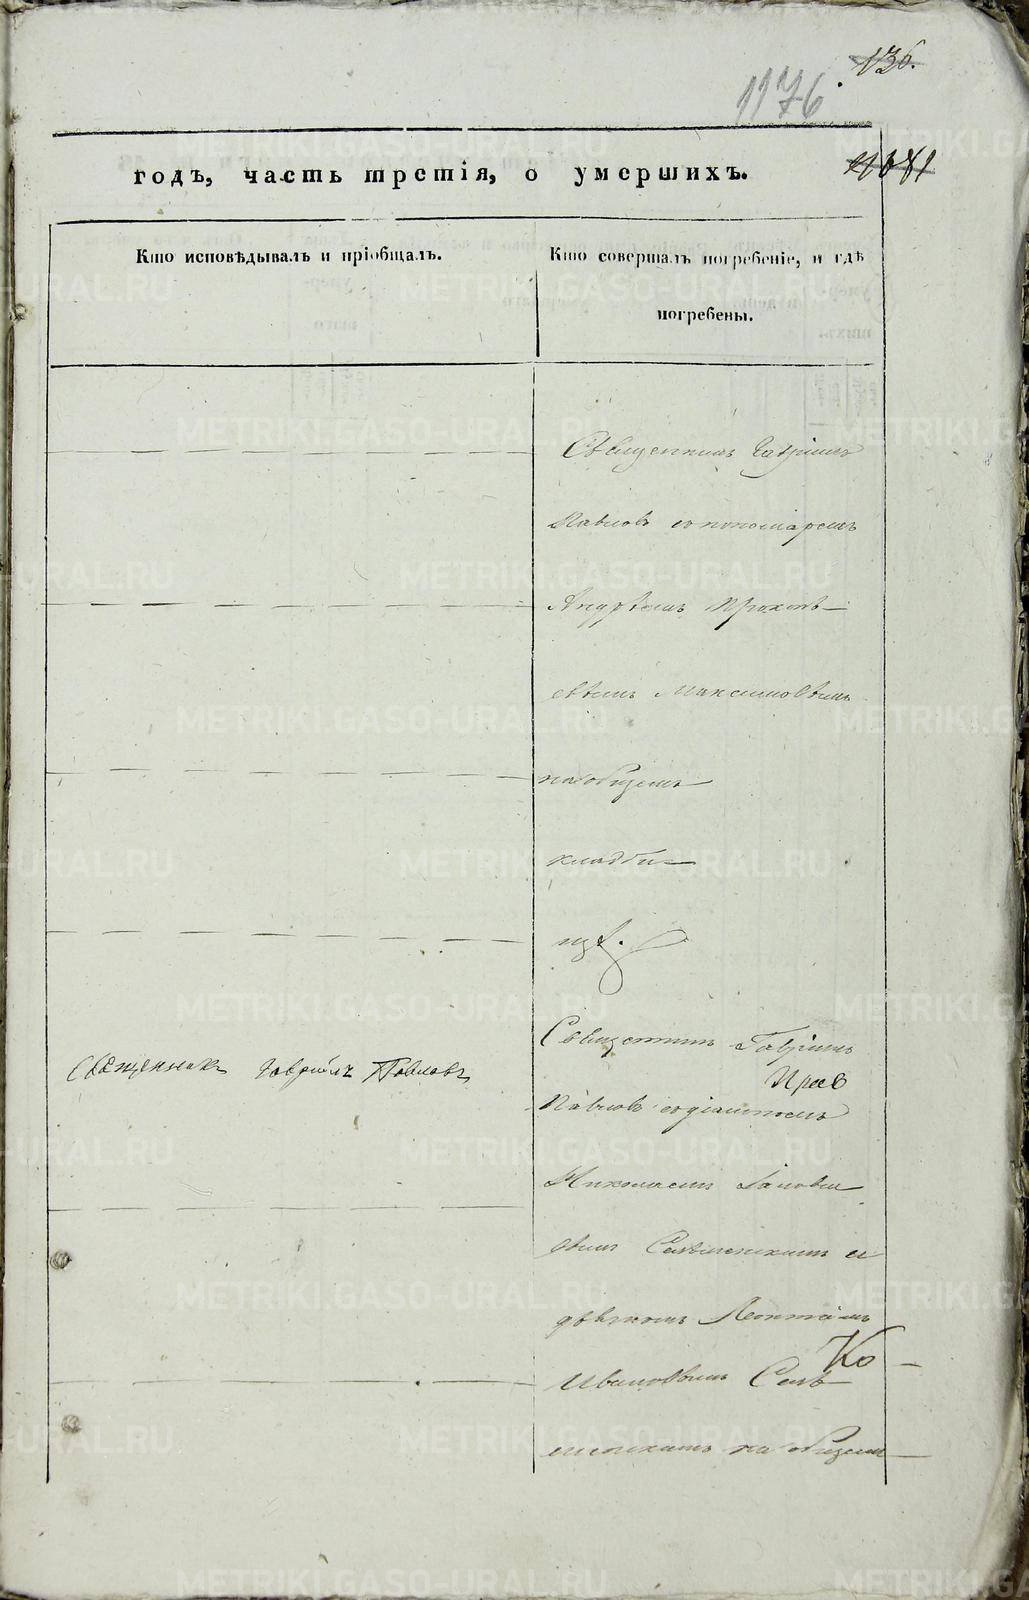 136.
1176.
годъ, часть третія, о умершихъ.
Кто исповѣдывалъ и пріобщалъ.
Кто совершалъ погребеніе, и гдѣ
погребены.
Священникъ Гавріилъ
Павловъ съ пономаремъ
Андрѣемъ Прокопь
евымъ Максимовымъ
на общемъ
кладби
щѣ.
Священникъ Гавріилъ
Священникъ Гавріилъ Павловъ
Павловъ съ діакономъ
Николаемъ
и
дьячкомъ Леонтіемъ
Ко
Ивановымъ
на общем
METRIKI.GASO-URAL.RU